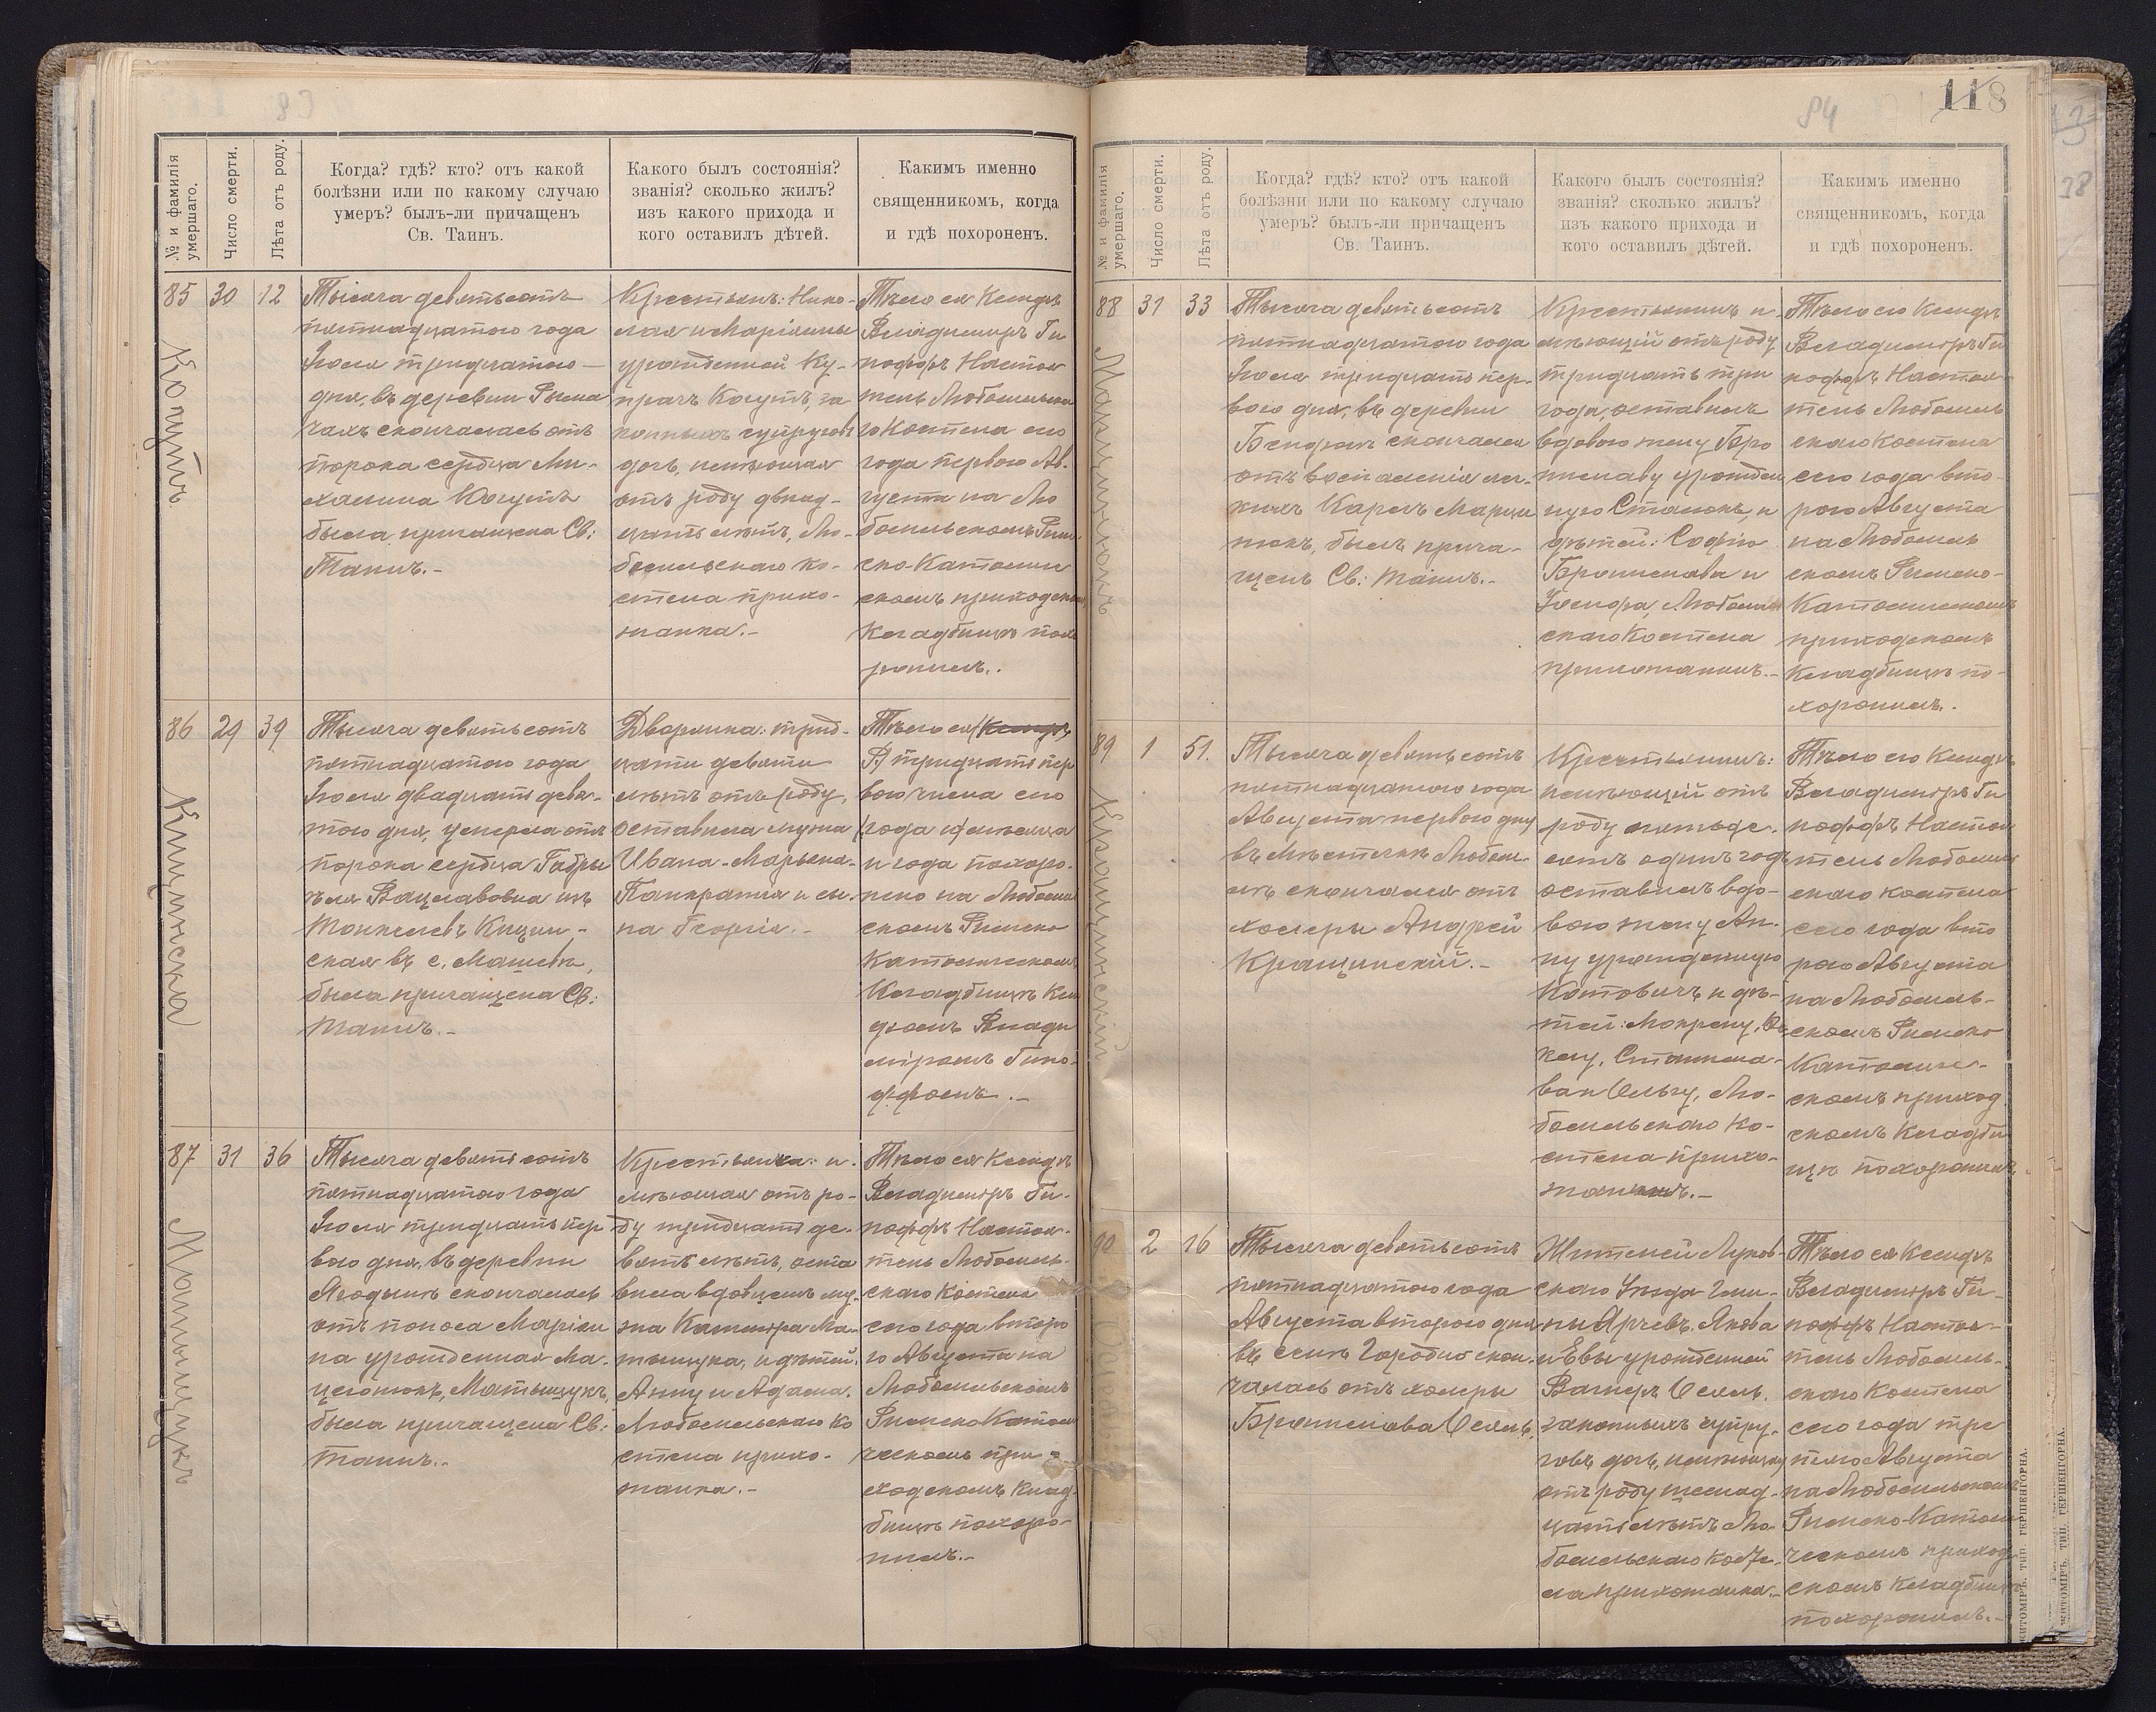 84
118
№ и фамилія умершаго.
Число смерти.
Лѣта отъ роду.
Когда? гдѣ? кто? отъ какой
болѣзни или по какому случаю
умеръ? былъ-ли причащенъ
Св. Таинъ.
Какого былъ состоянія?
званія? сколько жилъ?
изъ какого прихода и
кого оставилъ дѣтей.
Какимъ именно
священникомъ, когда
и гдѣ похороненъ.
85
Когутъ
30
12
Тысяча девятьсотъ
пятнадцатого года
Іюля тридцатого
дня, въ деревни
чахъ скончалась отъ
порока сердца Ми-
халина Когутъ
была причащена Св:
Таинъ.-
Крестьянъ: Нико-
лая и Маріанны
урожденной Ку-
прачъ Когутъ, за
конныхъ супруговъ
дочь, имѣющая
отъ роду двѣнад-
цать лѣтъ, Лю-
бомльскаго ко-
стела прихо-
жанка.-
Тѣло ея Ксендзъ
Владиміръ Ги
поффъ Настоя
тель Любомльска
го Костела сего
года перваго Ав-
густа на Лю
бомльскомъ Рим
ско-Католи
скомъ приходскомъ
Кладбищѣ похо
ронилъ.
86
Кицинска
29
39
Тысяча девятьсотъ
пятнадцатого года
Іюля двадцать девя-
того дня, умерла отъ
порока сердца Габры
ѣля Вацлавовна изъ
Кицин-
ская въ с. Машевъ,
была причащена Св:
Таинъ.-
Дворянка: трид-
цати девяти
лѣтъ отъ роду,
оставила мужа
Ивана-Марьяна-
Панкратія и сы-
на Георгія.-
Тѣло ея (Ксендзъ
В) тридцать пер
вого числа сего
года мѣсяца
и года похоро-
нено на Любомль
скомъ Римско
Католическомъ
Кладбищѣ Ксен
дзомъ Влади
міромъ Гипо-
ффомъ.-
87
Матыщукъ
31
36
Тысяча девятьсотъ
пятнадцатого года
Іюля тридцать пер
вого дня, въ деревни
Ягодынѣ скончалась
отъ поноса Маріан
на урожденная Ма-
цегонюкъ, Матыщукъ,
была причащена Св:
Таинъ.-
Крестьянка: и-
мѣющая отъ ро-
ду тридцать де-
вять лѣтъ, оста
вила вдовцемъ му-
жа Казимира Ма-
тыщука, и дѣтей:
Анну и Адама.
Любомльскаго Ко
стела прихо-
жанка.-
Тѣло ея Ксендзъ
Владиміръ Ги-
поффъ Настоя-
тель Любомль-
скаго Костела
сего года второ
го Августа на
Любомльскомъ
Римско Католи
ческомъ при-
ходскомъ Клад-
бищѣ похоро-
нилъ.-
№ и фамилія умершаго.
Число смерти.
Лѣта отъ роду.
Когда? гдѣ? кто? отъ какой
болѣзни или по какому случаю
умеръ? былъ-ли причащенъ
Св. Таинъ.
Какого былъ состоянія?
званія? сколько жилъ?
изъ какого прихода и
кого оставилъ дѣтей.
Какимъ именно
священникомъ, когда
и гдѣ похороненъ.
88
31
33
Тысяча девятьсотъ
пятнадцатого года
Іюля тридцать пер-
вого дня, въ деревни
скончался
отъ воспаленія лег-
кихъ Карлъ Марци
нюкъ, былъ прича-
щенъ Св: Таинъ.-
Крестьянинъ и-
мѣющій отъ роду
тридцать три
года, оставилъ
вдовою жену Бро
ниславу урожден
ную Станюкъ, и
дѣтей: Софію
Бронислава и
Іосифа, Любомль
скаго Костела
прихожанинъ.-
Тѣло его Ксендзъ
Владиміръ Ги
поффъ Настоя-
тель Любомль
скаго Костела
сего года вто-
рого Августа
на Любомль
скомъ Римско-
Католическомъ
приходскомъ
Кладбищѣ по-
хоронилъ.
89
Кращинскій
1
51.
Тысяча девятьсотъ
пятнадцатого года
Августа первого дня
въ Мѣстечкѣ Любом-
лѣ скончался отъ
холеры Андрей
Кращинскій.-
Крестьянинъ:
имѣющій отъ
роду пятьде-
сятъ одинъ годъ
оставилъ вдо-
вою жену Ан-
ну урожденную
Котовичъ и дѣ-
тей:
Станисла-
ва и Ольгу, Лю-
бомльскаго Ко-
стела прихо-
жанинъ.-
Тѣло его Ксендзъ
Владиміръ Ги
поффъ Настоя
тель Любомль
скаго костела
сего года вто
рого Августа
на Любомль-
скомъ Римско
Католиче-
скомъ приход
скомъ Кладби
щѣ похоронилъ.
90
2
16
Тысяча девятьсотъ
пятнадцатого года
Августа второго дня
въ селѣ Городно скон-
чалась отъ холеры
Бронислава
Жителей Луков-
скаго Уѣзда
Якова
и Евы урожденной
Вагнеръ
законныхъ супру-
говъ дочь, имѣющая
отъ роду шестнад-
цать лѣтъ Лю-
бомльскаго Косте-
ла прихожанка.-
Тѣло ея Ксендзъ
Владиміръ Ги-
поффъ Настоя-
тель Любомль-
скаго Костела
сего года тре
тьяго Августа
на Любомльскомъ
Римско-Католи
ческомъ приход
скомъ Кладбищѣ
похоронилъ.-
ЖИТОМІРЪ. ТИП. ГЕРШЕНГОРНА.
ЖИТОМІРЪ. ТИП. ГЕРШЕНГОРНА.
28